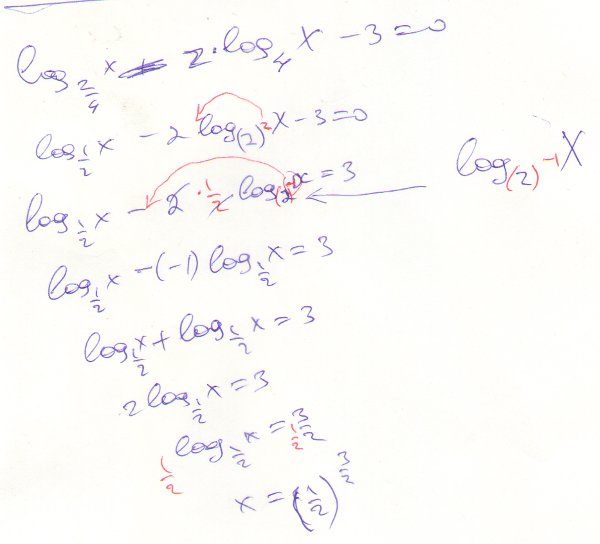 log_{2/4} x - 2·log_4 x - 3 = 0
log_{1/2} x - 2 log_{(2)^2} x - 3 = 0
log_{1/2} x - 2·1/2 log x = 3
log_{(2)^{-1}} x
log_{1/2} x - (-1) log_{1/2} x = 3
log_{1/2} x + log_{1/2} x = 3
2 log_{1/2} x = 3
log_{1/2} x = 3/2
1/2 1/2
x = (1/2)^{3/2}